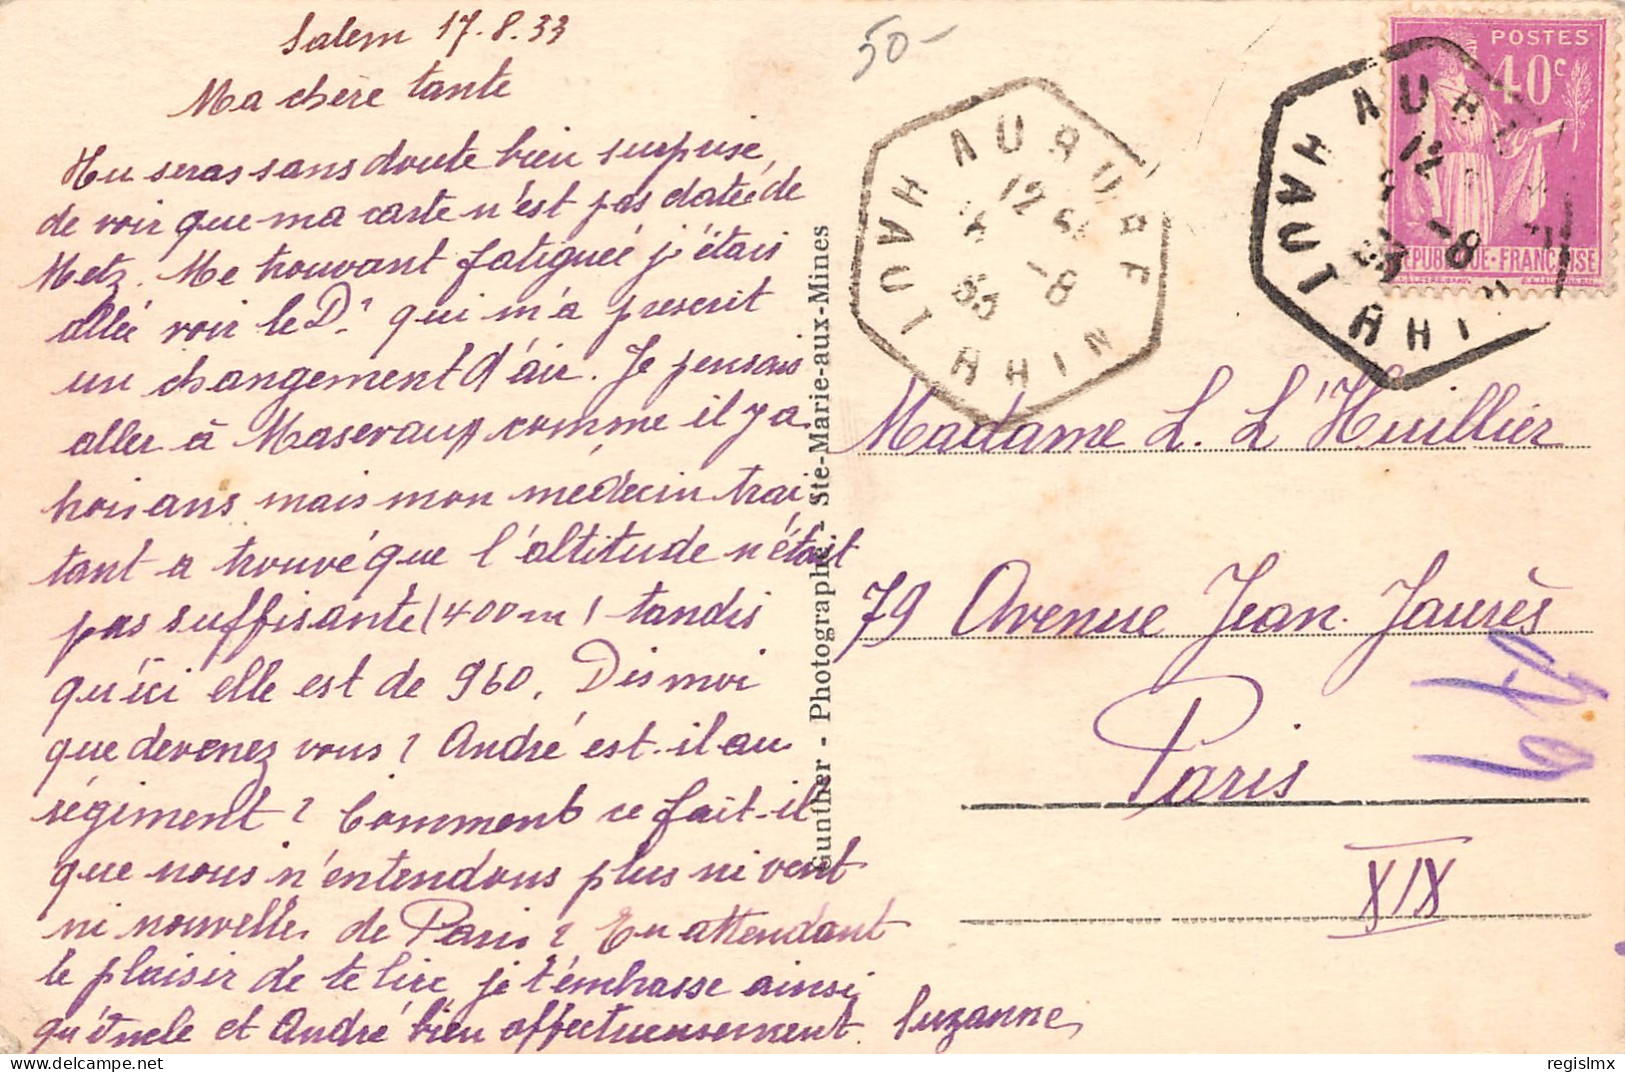 Salem 17.8.33
Ma chère tante
Tu seras sans doute bien surprise,
de voir que ma carte n'est pas datée de
Metz. Me trouvant fatiguée j'étais
allée voir le Dr qui m'a prescrit
un changement d'air. Je pensais
aller à Masevaux comme il y a
trois ans mais mon médecin trai
tant a trouvé que l'altitude n'était
pas suffisante (400m) tandis
qu'ici elle est de 960. Dis moi
que devenez vous? André est-il au
régiment? Comment ce fait-il
que nous n'entendons plus ni vent
ni nouvelles de Paris? En attendant
le plaisir de te lire je t'embrasse ainsi
qu'oncle et André bien affectueusement. Suzanne
Gunther - Photographe - Ste-Marie-aux-Mines
50-
AURE
HAUT RHIN
12
-8
33
AU
HAUT RHIN
12
-8
33
POSTES
40c
REPUBLIQUE-FRANÇAISE
Madame L. L'Huillier
79 Avenue Jean-Jaurès
Paris
XIX
regislmx